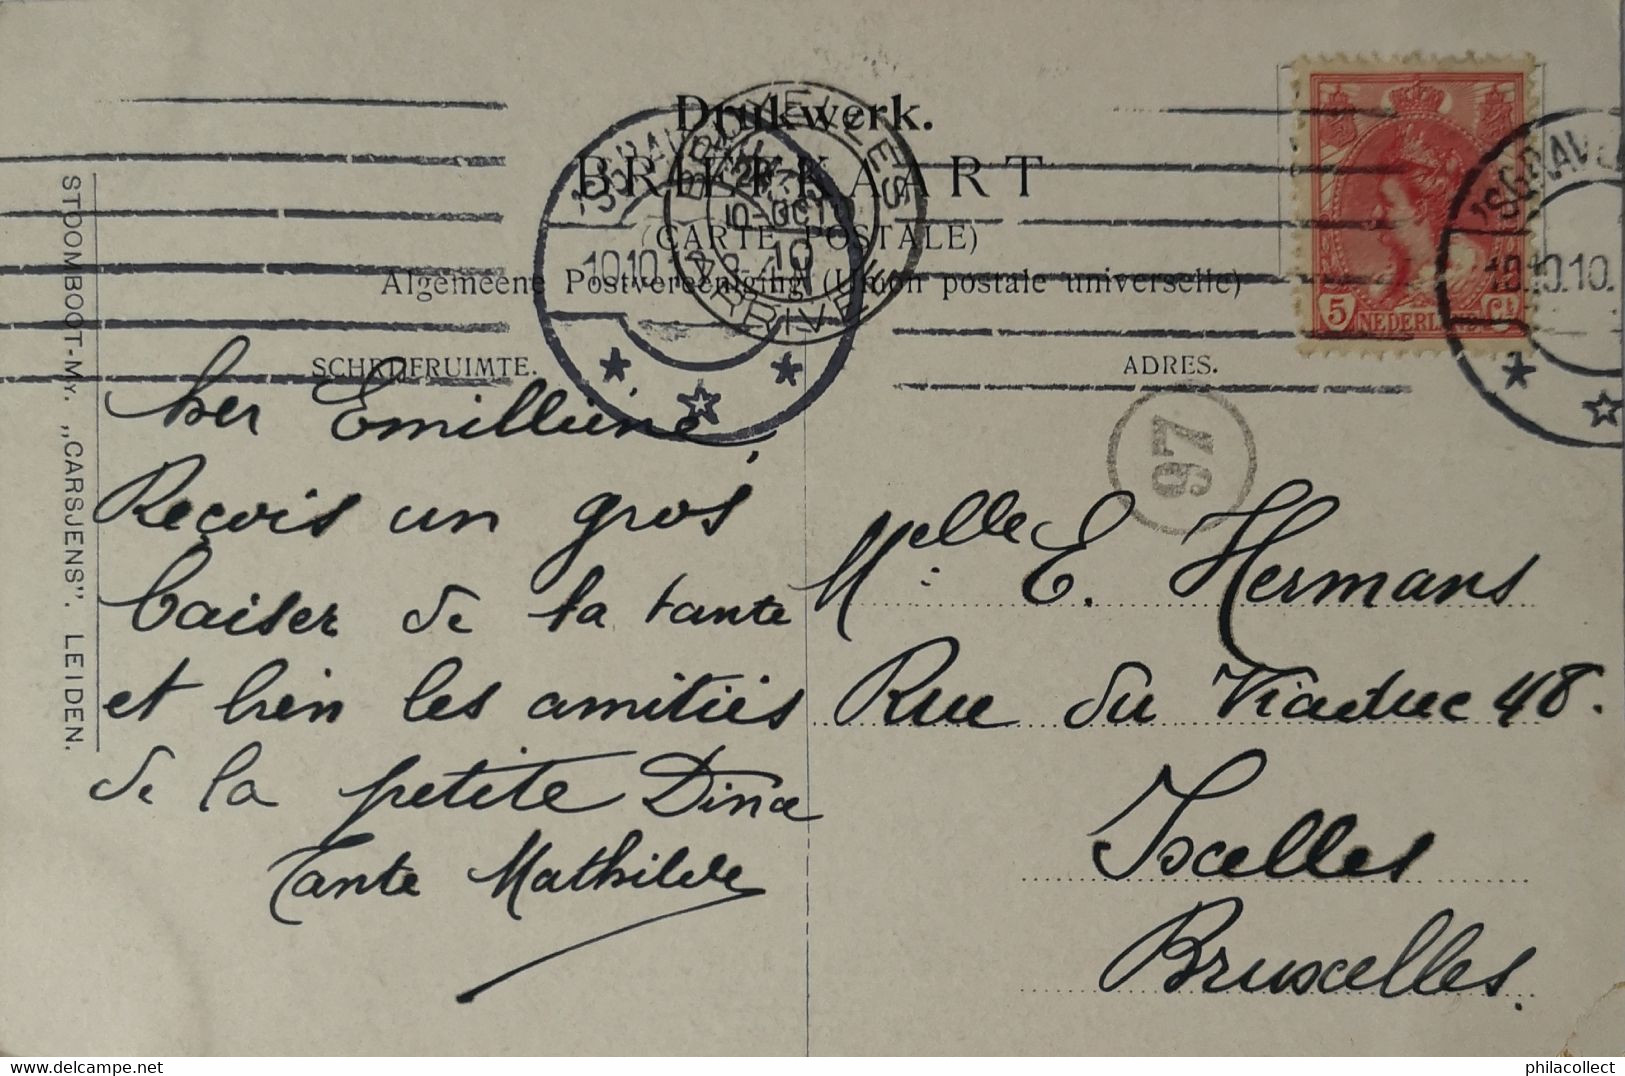 Drukwerk.
BRIEFKAART
(CARTE POSTALE)
Algemeene Postvereeniging (Union postale universelle)
SCHRIJFRUIMTE.
ADRES.
STOOMBOOT-My. „CARSJENS”. LEIDEN.
BRUXELLES
10-OCT
10
ARRIVEE
10.10.1
'SGRAVE
10.10.10.
5 NEDERLAND Ct
97
Cher Emilliine,
Reçois un gros
baiser de ta tante
et bien les amitiés
de la petite Dina
Tante Mathilde
Melle E. Hermans
Rue du Viaduc 48.
Ixelles
Bruxelles.
philacollect